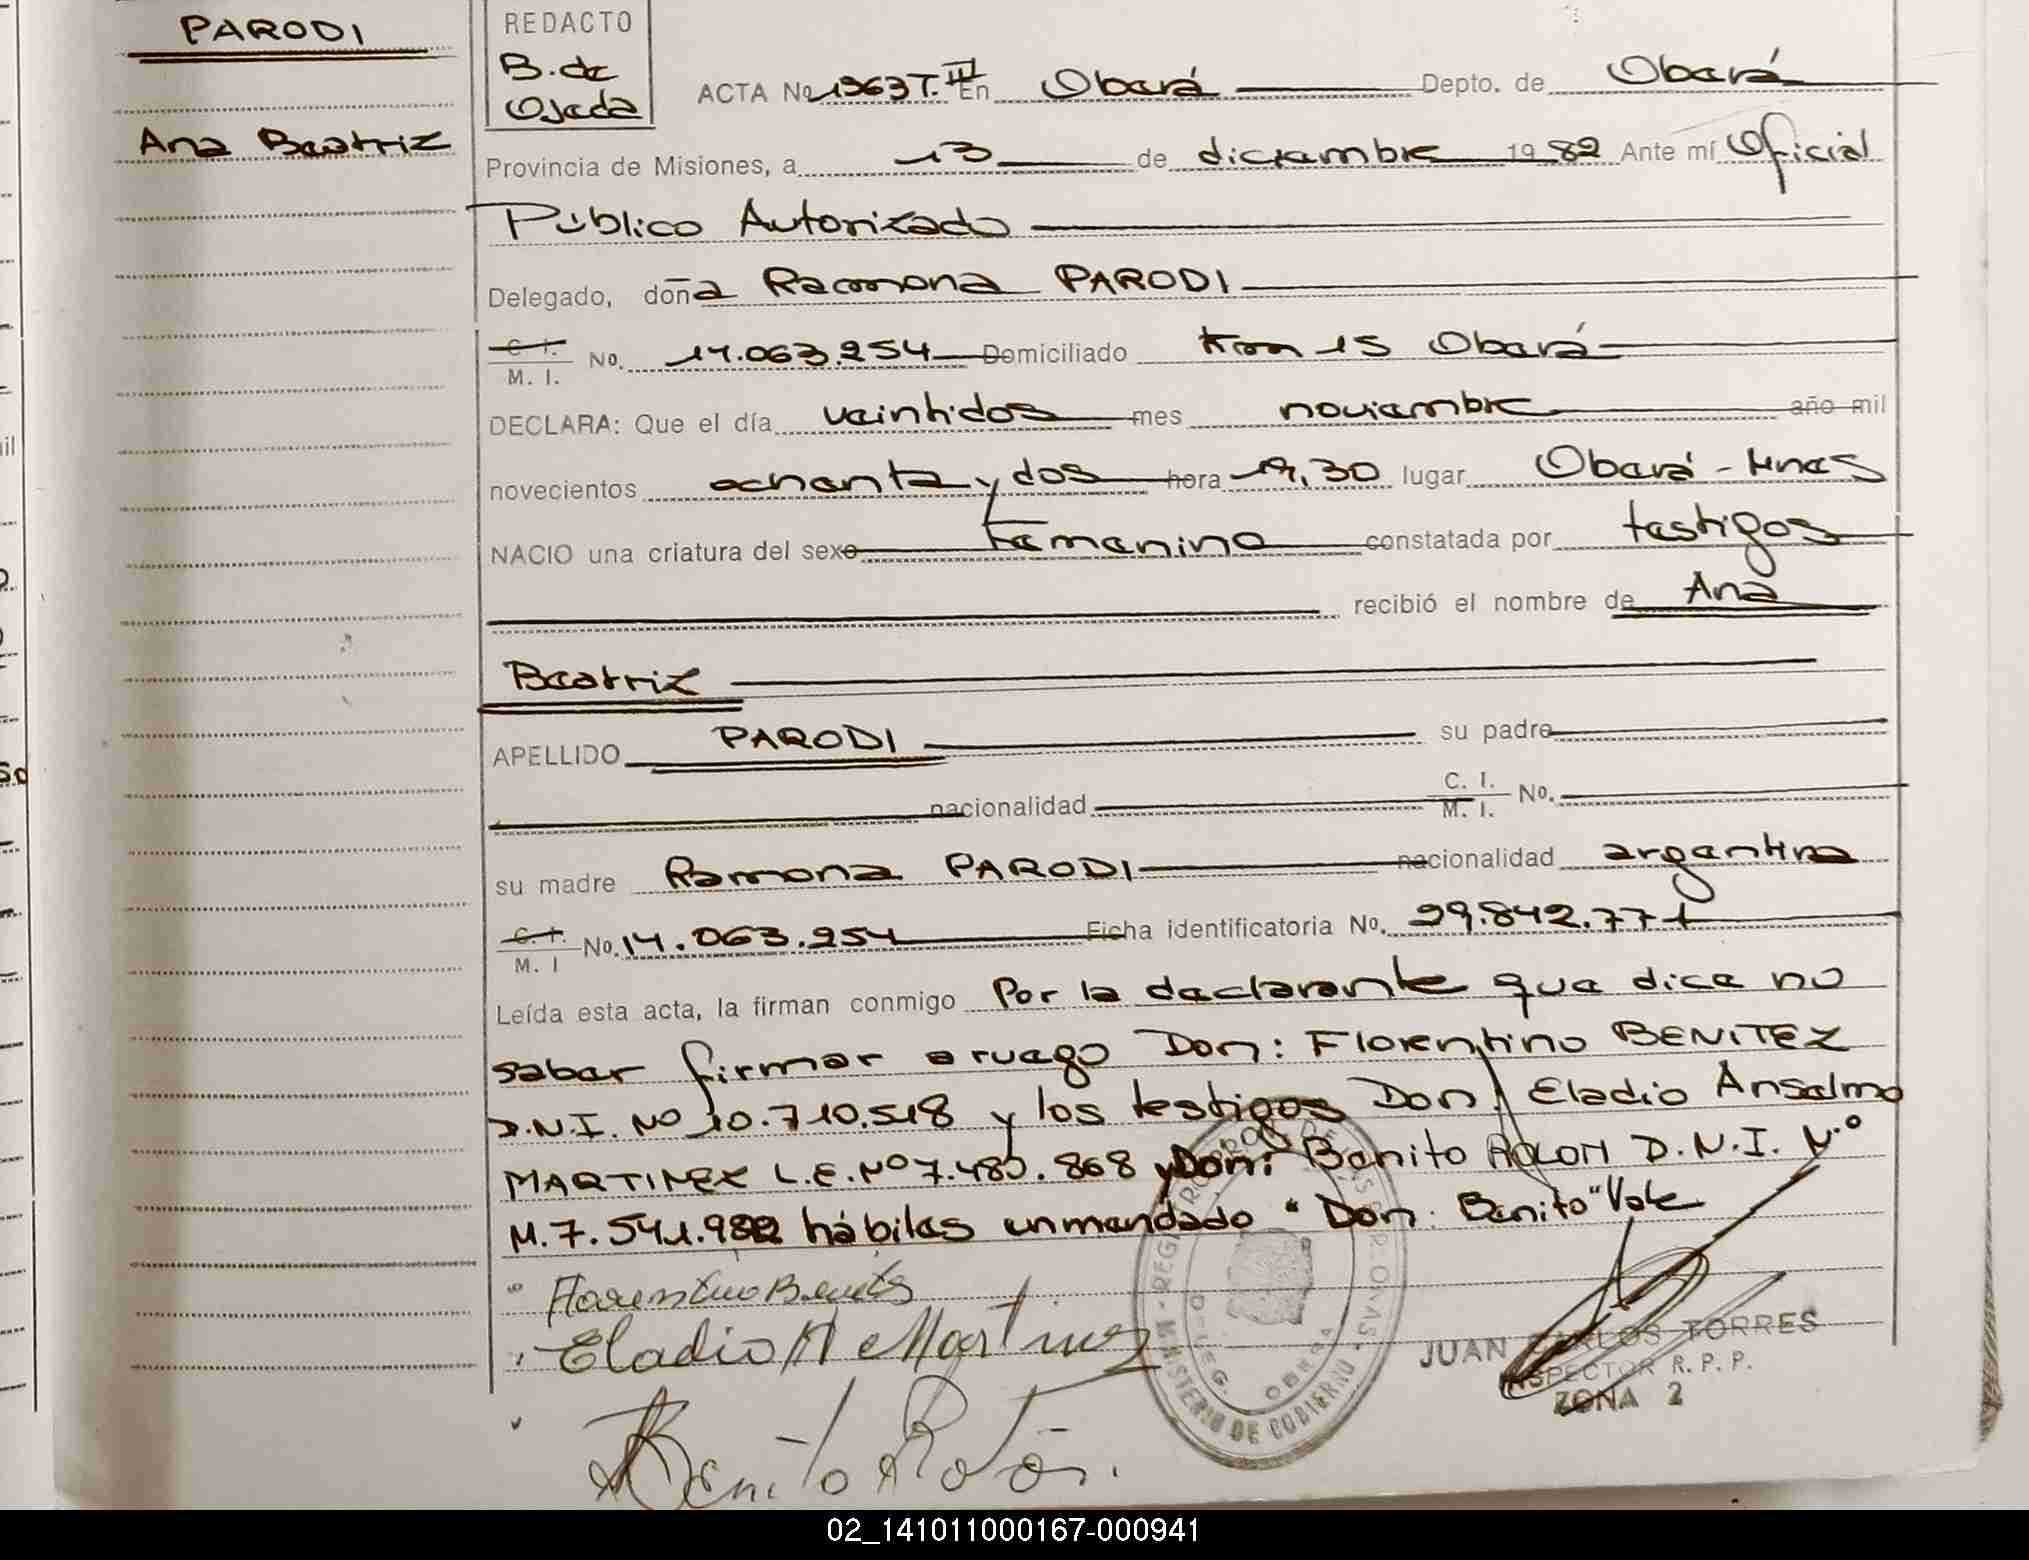 PARODI
Ana Beatriz
REDACTO
B. de
Ojeda
ACTA No 1963 T. III En Oberá Depto. de Oberá
Provincia de Misiones, a 13 de diciembre 19 82 Ante mí Oficial
Público Autorizado
Delegado, doña Ramona PARODI
C. I.
M. I. No. 14.063.254 Domiciliado Km 15 Oberá
DECLARA: Que el día veintidos mes noviembre año mil
novecientos ochenta y dos hora 19,30 lugar Oberá - Mnes
NACIO una criatura del sexo femenino constatada por testigos
recibió el nombre de Ana
Beatriz
APELLIDO PARODI su padre
nacionalidad C. I.
M. I. No.
su madre Ramona PARODI nacionalidad argentina
C. I.
M. I No. 14.063.254 Ficha identificatoria No. 29.842.771
Leída esta acta, la firman conmigo Por la declarante que dice no
saber firmar a ruego Don: Florentino BENITEZ
D.N.I. No 10.710.518 y los testigos Don: Eladio Anselmo
MARTINEZ L.E. No 7.485.868 y Don: Benito ROLON D.N.I. No
M. 7.541.982 hábiles enmendado "Don: Benito" Vale
Florentino Benites
Eladio A Martinez
Benito Rolón.
MINISTERIO DE GOBIERNO
OBERA
JUAN CARLOS TORRES
INSPECTOR R. P. P.
ZONA 2
02_141011000167-000941